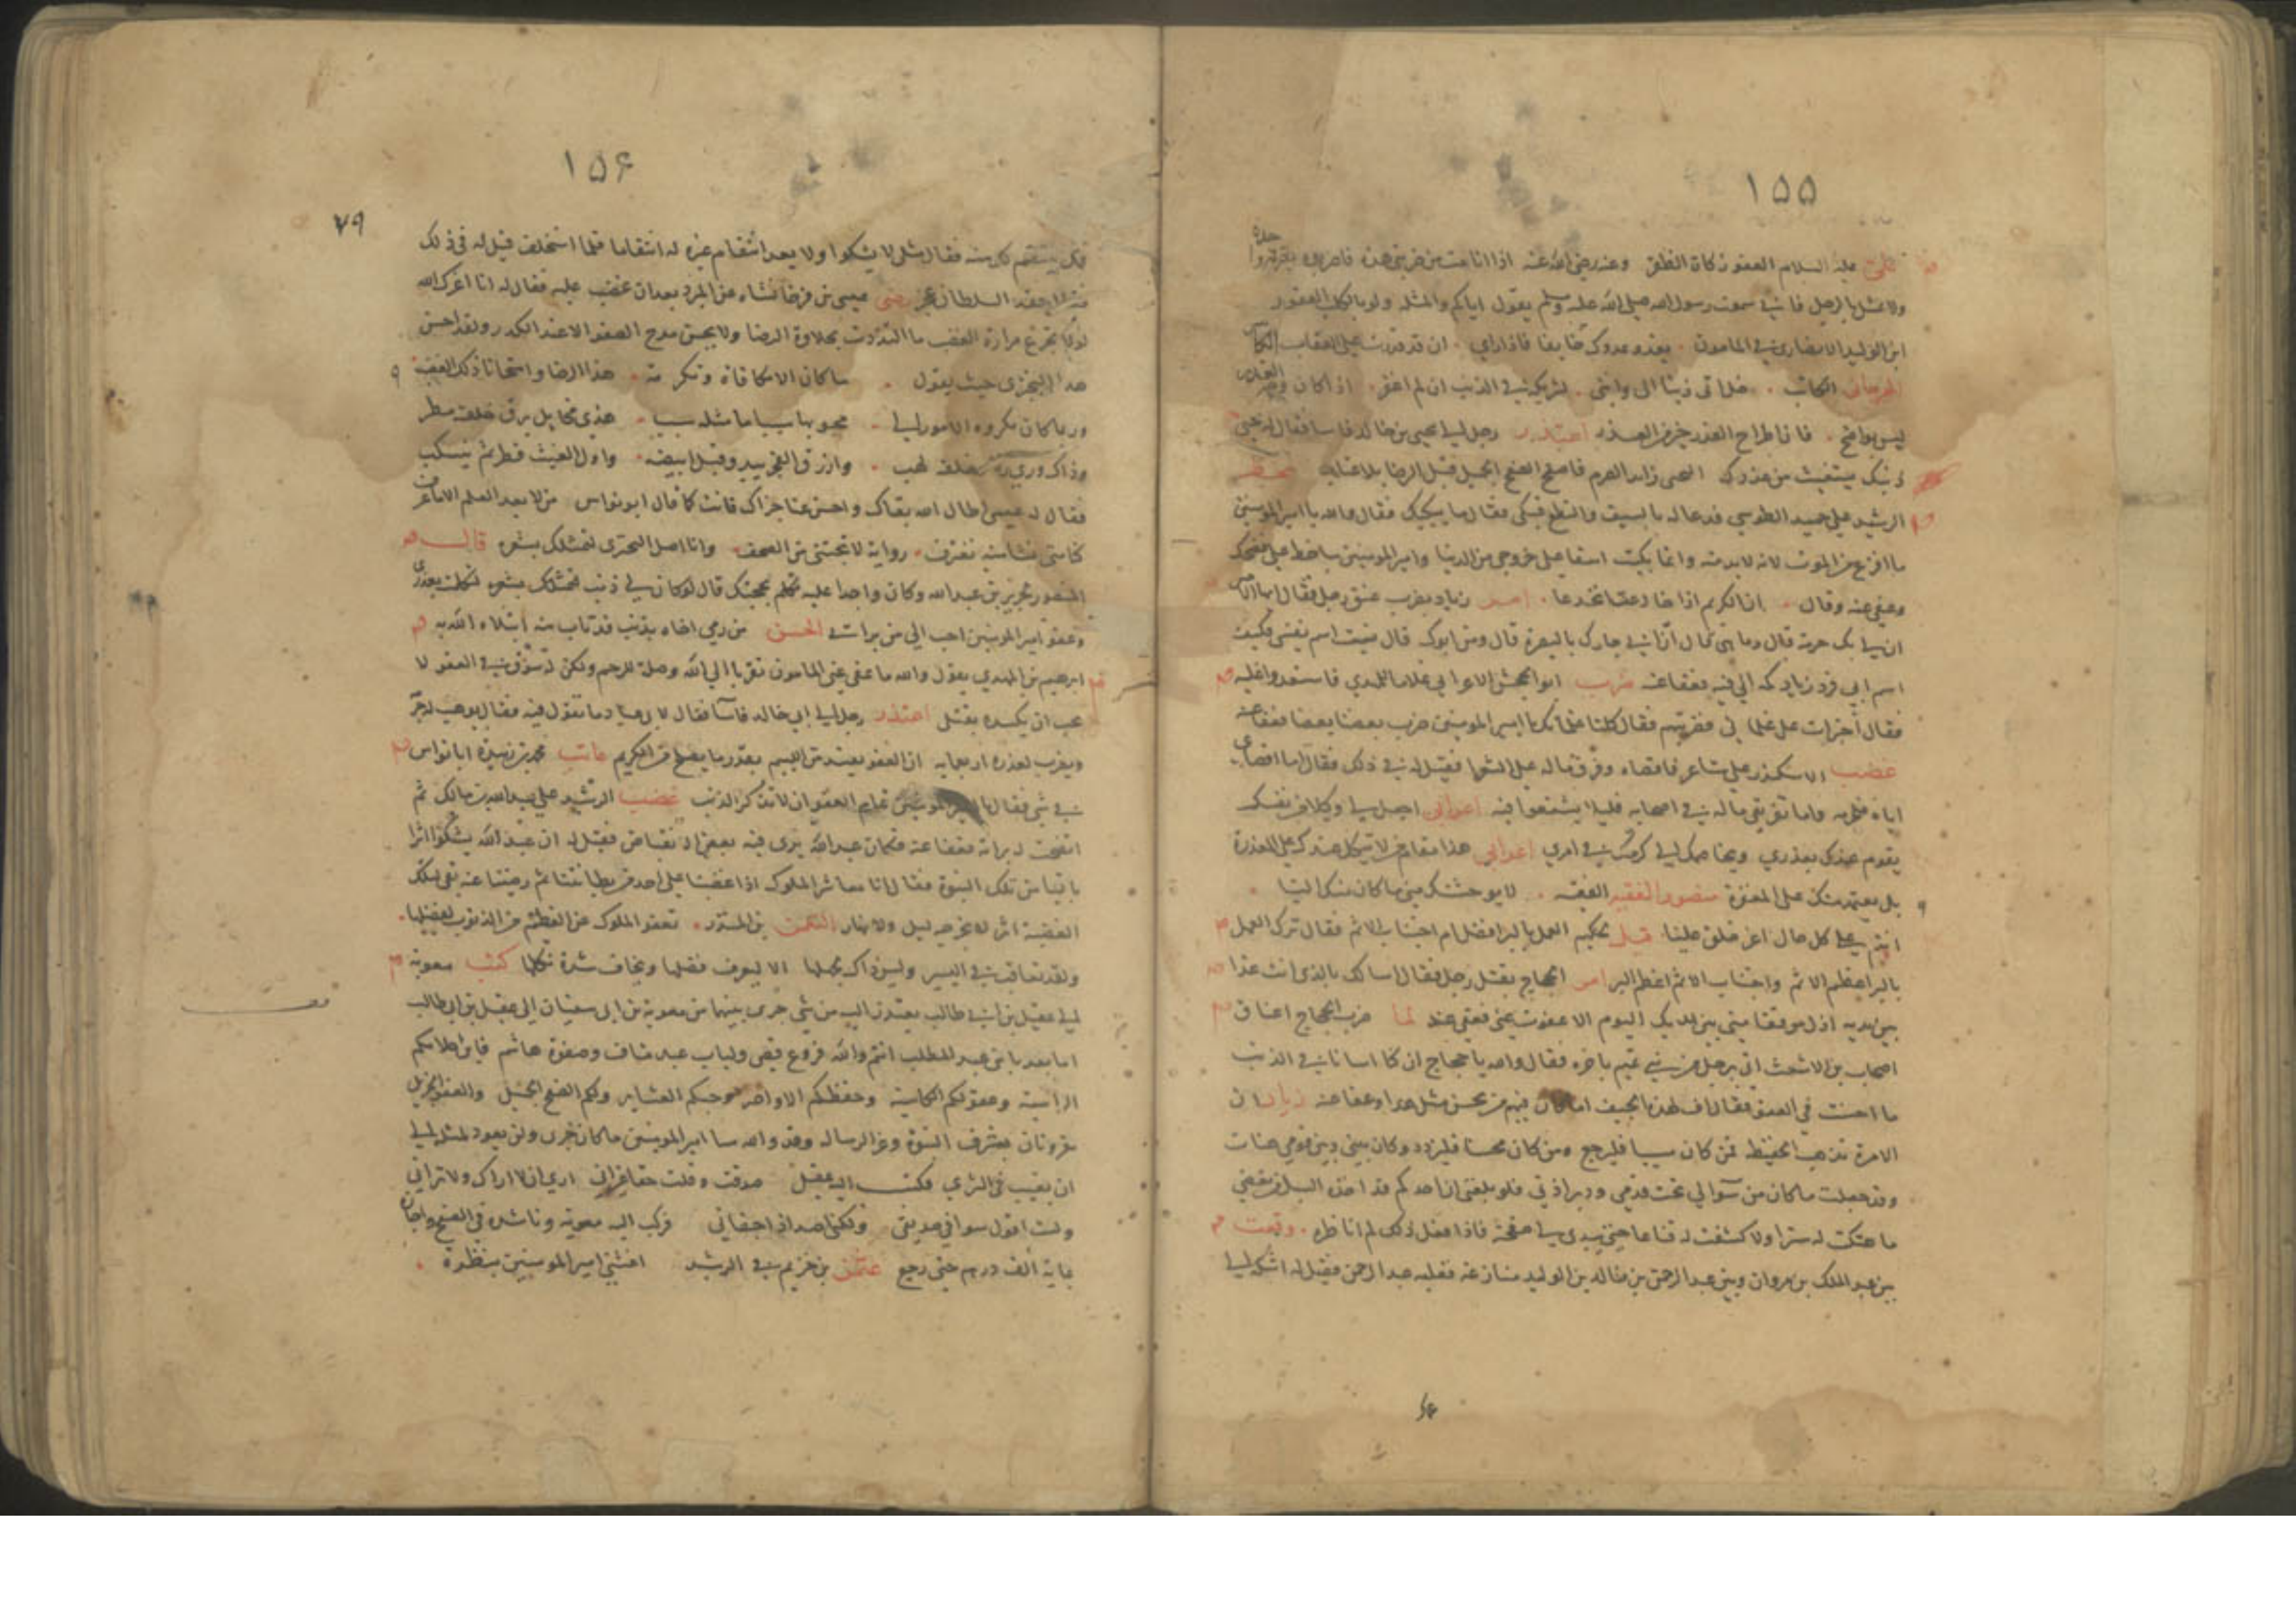 ١٥٥
علي عليه السلام العفو زكاة الظفر وعنه رضي الله عنه اذا انا مت من ضربتي هذه فاضربوه ضربة
ولا تمثل بالرجل فاني سمعت رسول الله صلى الله عليه وسلم يقول اياكم والمثلة ولو بالكلب العقور
ابن الوليد الانصاري في المامون يغدو عدوك خايفا فاذا راي ان قد قدرت على العقاب
الكاتب
ليس بواضح فان اطراح العذر خير من العذر اعتذر رجل الى يحيى بن خالد فاسا فقال يحيى
ذنبك يستغيث من عذرك
الرشيد على حميد الطوسي فدعا له بالسيف والنطع فبكى فقال ما يبكيك فقال والله يا امير المومنين
ما افزع من الموت لانه لا بد منه وانما بكيت اسفا على خروجي من الدنيا وامير المومنين ساخط علي فضحك
وعفى عنه وقال ان الكريم اذا خادعته انخدعا امر زياد بضرب عنق رجل فقال ايها الامير
ان لي بك حرمة قال وما هي قال ان ابي جارك بالبصرة قال ومن ابوك قال نسيت اسم نفسي فكيف
اسم ابي فرد زياد كمه الى فيه فعفا عنه ضرب الاعرابي غلاما للمهدي فاستعدوا عليه
فقال اجترات على غلماني فضربتهم فقال كلنا غلمانك يا امير المومنين ضرب بعضنا بعضا فعفا عنه
غضب الاسكندر على شاعر فاقصاه وفرق ماله على الشعرا فقيل له في ذلك فقال اما اقصاي
اياه فلجرمه واما تفريقي ماله في اصحابه فليلا يشفعوا فيه اعرابي اجعل لي وكيلا من نفسك
يقوم عندك بعذري ويخاصمك الى كرمك في امري اعرابي هذا مقام من لا يتكل عندك على المعذرة
بل يعتمد منك على المغفرة منصور الفقيه الفقيه لا يوحشنك مني ما كان منك اليا
انتم على كل حال اعز خلق عليا قيل لحكيم العمل بالبر افضل ام اجتناب الاثم فقال ترك العمل
بالبر اعظم الاثم واجتناب الاثم اعظم البر امر الحجاج بقتل رجل فقال اسالك بالذي انت غدا
بين يديه اذل موقفا مني بين يديك اليوم الا عفوت عني فعفى عنه لما ضرب الحجاج اعناق
اصحاب بن الاشعث اتي برجل من بني تميم باخره فقال والله يا حجاج ان كنا اسانا في الذنب
ما احسنت في العفو فقال اف لهذه الجيف اما كان فيهم من يحسن مثل هذا وعفا عنه زياد ان
الامرة تذهب الحفيظة فمن كان مسيا فليرجع ومن كان محسنا فليزدد وكان بيني وبين قومي هنات
وقد جعلت ما كان من سوالي تحت قدمي ودبر اذني فلو بلغني ان احدكم قد اخذه السل من بغضي
ما هتكت له سترا ولا كشفت له قناعا حتى يبدي لي صفحته فاذا فعل ذلك لم اناظره وقعت
بين عبد الملك بن مروان وبين عبد الرحمن بن خالد بن الوليد منازعة فغلبه عبد الرحمن فقيل له اشكه الى
١٥۶
٧٩
فقال مثلي لا يشكوا ولا يعد انتقام غيره له انتقاما فلما استخلف قيل له في ذلك
رضي عيسى بن فرخانشاه عن المبرد بعد ان غضب عليه فقال له انا اعزك الله
لولا تجرع مرارة الغضب ما التذذت بحلاوة الرضا ولا يحسن مدح الصفو الا عند الكدر ولقد احسن
هذا البحتري حيث يقول ما كان الا مكافاة وتكرمة هذا الرضا وامتحانا ذلك الغضب
وربما كان مكروه الامور الى محبوبها سببا ما مثله سبب هذي مخايل برق خلفه مطر
وذاك وري زناد خلفه لهب وازرق الفجر يبدو قبل ابيضه واول الغيث قطر ثم ينسكب
فقال له عيسى اطال الله بقاك واحسن عنا جزاك فانت كما قال ابو نواس من لا يعد العلم الا ما عرف
كنا متى نشا منه نغترف رواية لا تجتنى من الصحف وانا اصل البحتري لتمثلك بشعره قال
المنصور لجرير بن عبد الله وكان واجدا عليه تكلم بحجتك قال لو كان لي ذنب لتكلمت بعذري
وعفو امير المومنين احب الي من براتي الحسن من رمي اخاه بذنب قد تاب منه ابتلاه الله به
ابرهيم بن المهدي يقول والله ما عفى عني المامون تقربا الى الله وصلة للرحم ولكن له سوق في العفو لا
يحب ان يكسد بقتلي اعتذر رجل الى ابي خالد فاسا فقال لابي عباد ما تقول فيه فقال يوهب له جرمه
ويضرب لعذره اربعمايه ان العفو يفسد من الليم بقدر ما يصلح من الكريم عاتب محمد بن زبيدة ابا نواس
في شي فقال يا امير المومنين تمام العفو ان لا تذكر الذنب غضب الرشيد على عبد الله بن مالك ثم
اتضحت له براته فعفا عنه فكان عبد الله يرى فيه بعض الانقباض فقيل له ان عبد الله يشكوا اثرا
باقيا من تلك النبوة فقال انا معاشر الملوك اذا غضبنا على احد من بطانتنا ثم رضينا عنه بقي لتلك
الغضبة اثر لا يخرجه ليل ولا نهار النعمن بن المنذر تعفو الملوك عن العظيم من الذنوب لفضلها
ولقد تعاقب في اليسير وليس ذاك بجهلها الا ليعرف فضلها ويخاف شدة نكلها كتب معوية
الى عقيل بن ابي طالب يعتذر اليه من شي جرى بينهما من معوية بن ابي سفيان الى عقيل بن ابي طالب
اما بعد يا بني عبد المطلب انتم والله فروع قصي ولباب عبد مناف وصفوة هاشم فاين احلامكم
الراسية وعقولكم الكاسية وحفظكم الاواصر وحبكم العشاير ولكم الصفح الجميل والعفو الجزيل
مقرونان بشرف النبوة وعز الرسالة وقد والله سا امير المومنين ما كان جرى ولن يعود لمثله الى
ان يغيب في الثرى فكتب اليه عقيل صدقت وقلت حقا غير اني ارى ان لا اراك ولا تراني
ولست اقول سوا في صديقي ولكني اصد اذا جفاني فركب اليه معوية وناشده في الصفح واجازه
بماية الف درهم حتى رجع بن خزيم في الرشيد امير المومنين بنظرة